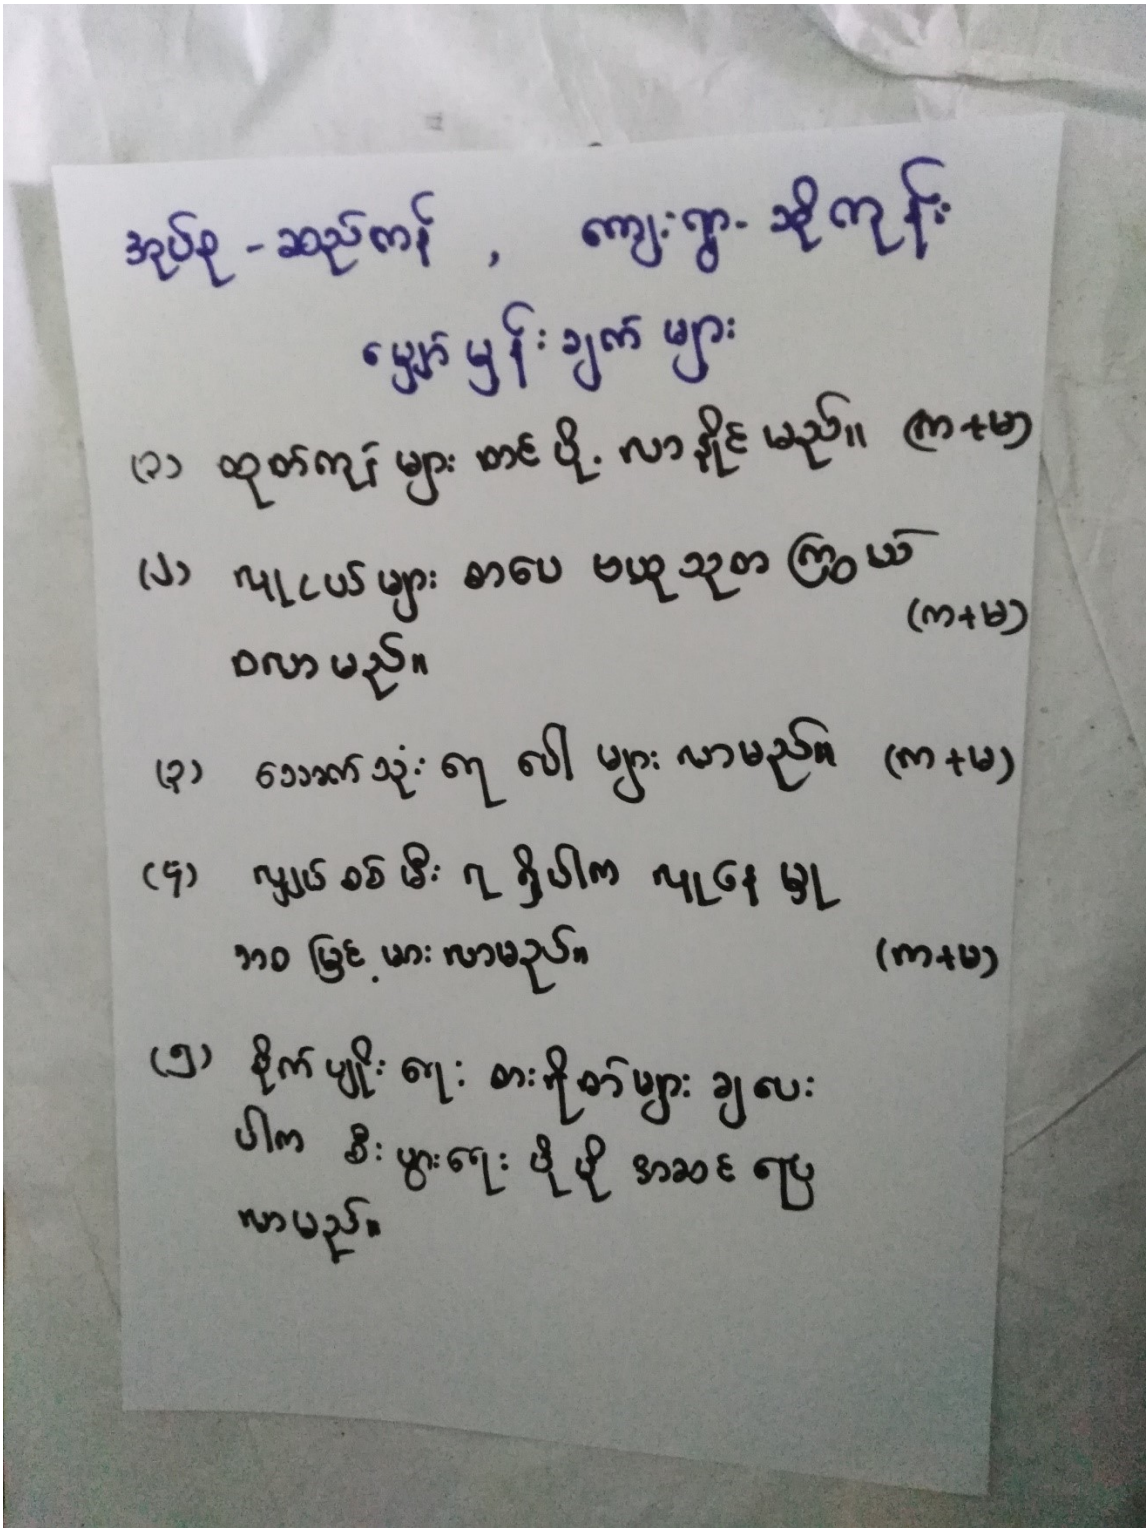 အုပ်စု - ဆည်ကန် , ကျေးရွာ - ဆိုကုန်း
မျှော်မှန်းချက် များ
(၁) ထုတ်ကုန် များ တင် ပို့ လာ နိုင် မည်။ (ကာ + မ)
(၂) လူငယ် များ စာပေ ဗဟု သုတ ကြွယ်
(ကာ + မ)
ဝလာ မည်။
(၃) သောက်သုံး ရေ ပေါ များ လာမည်။ (ကာ + မ)
(၄) လျှပ် စစ် မီး ရ ရှိပါက လူနေ မှု
ဘဝ မြင့် မား လာမည်။ (ကာ + မ)
(၅) စိုက် ပျိုး ရေး စားရိတ် များ ချ ပေး
ပါက စီး ပွားရေး ပို မို အဆင် ပြေ
လာမည်။